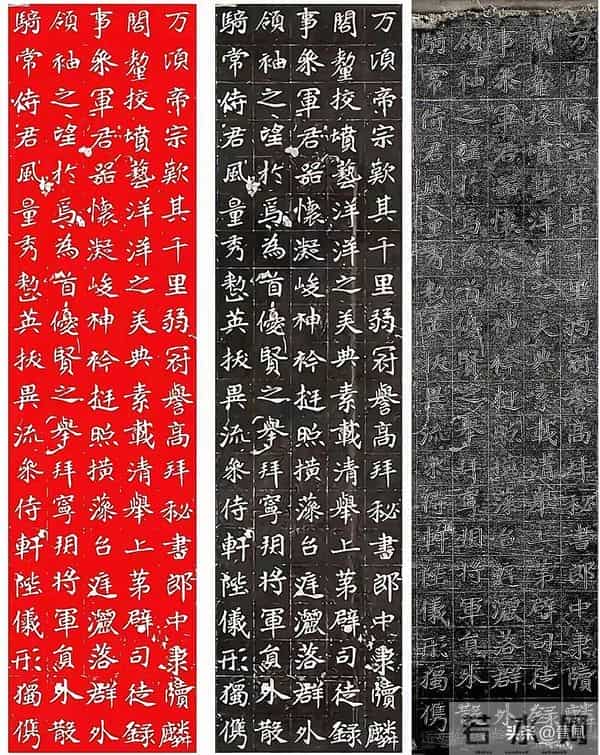 万頃帝宗歎其千里弱冠譽高拜秘書郎中隶牘麟
閣釐挍墳藝洋洋之美典素載清舉上第辟司徒録
事叅軍君器懷凝峻神衿挺照摛藻台庭灑落群外
領袖之望於焉為首優賢之舉拜寧朔将軍員外散
騎常侍君風量秀整英拔異流叅侍軒陛儀形獨儁
万頃帝宗歎其千里弱冠譽高拜秘書郎中隶牘麟
閣釐挍墳藝洋洋之美典素載清舉上第辟司徒録
事叅軍君器懷凝峻神衿挺照摛藻台庭灑落群外
領袖之望於焉為首優賢之舉拜寧朔将軍員外散
騎常侍君風量秀整英拔異流叅侍軒陛儀形獨儁
万頃帝宗歎其千里弱冠譽高拜秘書郎中隶牘
閣釐挍墳藝洋洋之美典素載清舉上第辟司徒
事叅軍君器懷凝峻神衿挺照摛藻台庭灑落群
領袖之望於焉為首優賢之舉拜寧朔将軍員外
騎常侍君風量秀整英拔異流叅侍軒陛儀形獨儁
头条@書鳳